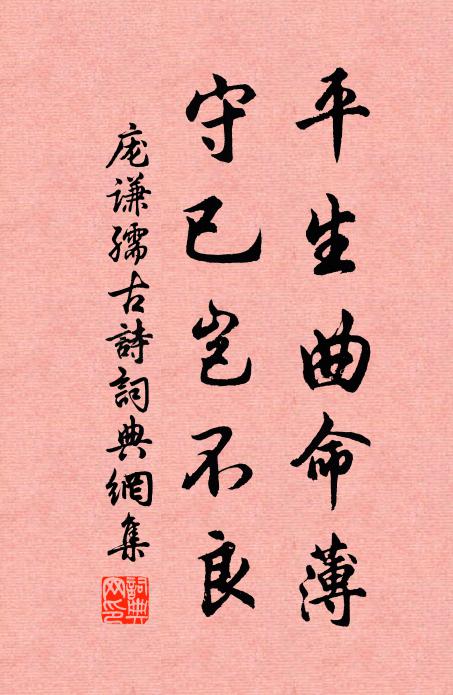 平生曲命薄
守已岂不良
庞谦孺古詩詞典網集
詞典網印